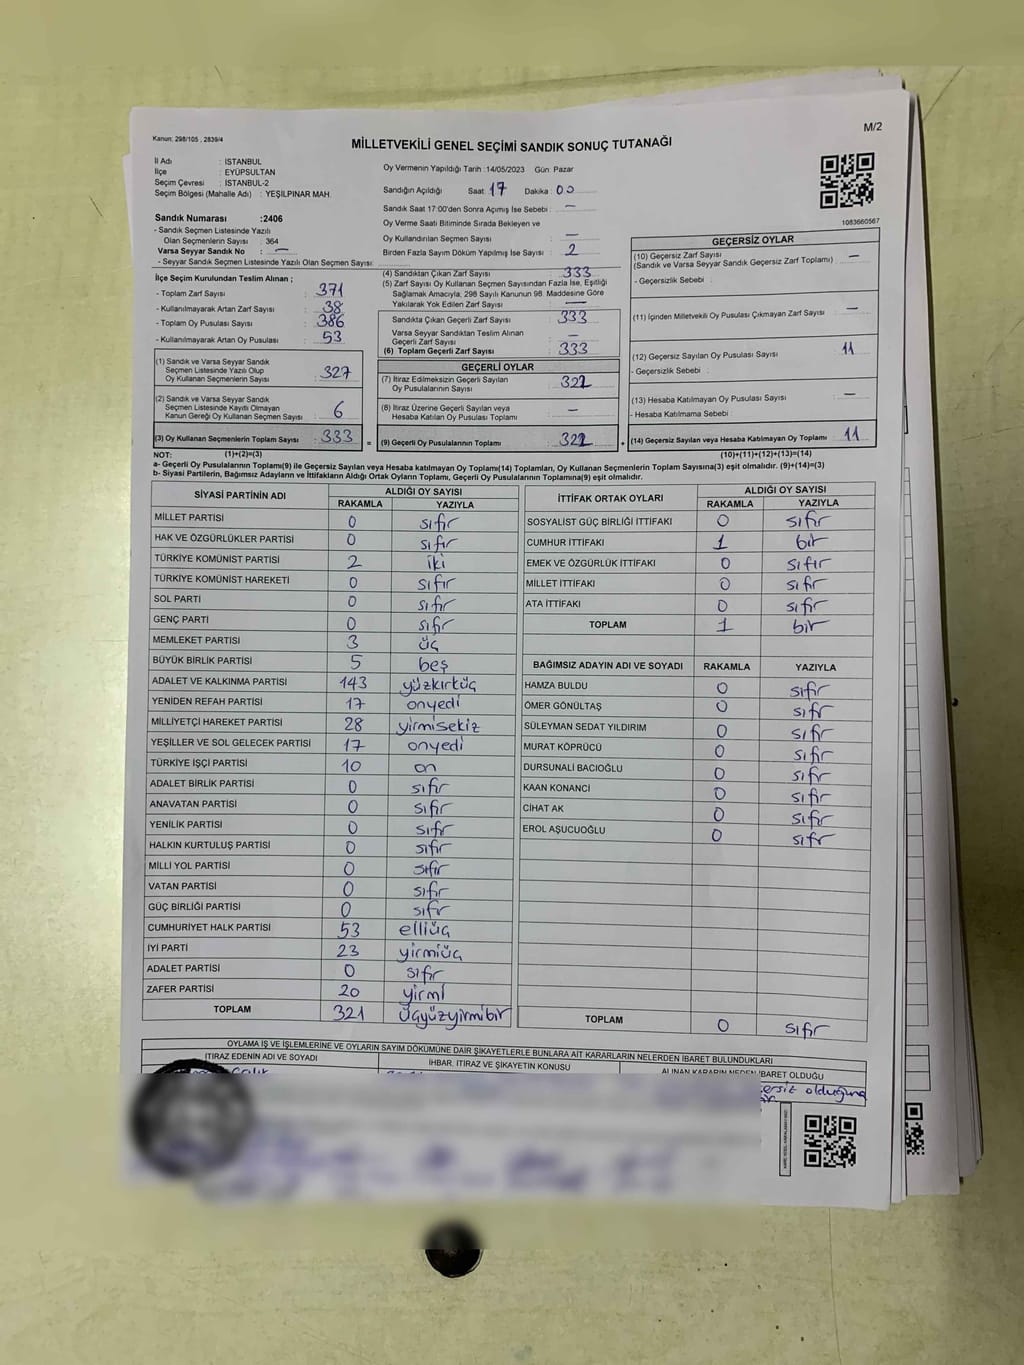 Kanun: 298/105 , 2839/4
M/2
MİLLETVEKİLİ GENEL SEÇİMİ SANDIK SONUÇ TUTANAĞI
İl Adı : İSTANBUL
İlçe : EYÜPSULTAN
Seçim Çevresi : İSTANBUL-2
Seçim Bölgesi (Mahalle Adı) : YEŞİLPINAR MAH.
Sandık Numarası :2406
- Sandık Seçmen Listesinde Yazılı
Olan Seçmenlerin Sayısı : 364
Varsa Seyyar Sandık No : —
- Seyyar Sandık Seçmen Listesinde Yazılı Olan Seçmen Sayısı:
Oy Vermenin Yapıldığı Tarih :14/05/2023 Gün: Pazar
Sandığın Açıldığı Saat: 17 Dakika: 00
Sandık Saat 17:00'den Sonra Açımış İse Sebebi : —
Oy Verme Saati Bitiminde Sırada Bekleyen ve
Oy Kullandırılan Seçmen Sayısı : —
Birden Fazla Sayım Döküm Yapılmış İse Sayısı : 2
1083660567
İlçe Seçim Kurulundan Teslim Alınan ;
- Toplam Zarf Sayısı : 371
- Kullanılmayarak Artan Zarf Sayısı : 38
- Toplam Oy Pusulası Sayısı : 386
- Kullanılmayarak Artan Oy Pusulası : 53
(1) Sandık ve Varsa Seyyar Sandık
Seçmen Listesinde Yazılı Olup
Oy Kullanan Seçmenlerin Sayısı : 327
(2) Sandık ve Varsa Seyyar Sandık
Seçmen Listesinde Kayıtlı Olmayan
Kanun Gereği Oy Kullanan Seçmen Sayısı : 6
(3) Oy Kullanan Seçmenlerin Toplam Sayısı : 333 =
(4) Sandıktan Çıkan Zarf Sayısı : 333
(5) Zarf Sayısı Oy Kullanan Seçmen Sayısından Fazla İse, Eşitliği
Sağlamak Amacıyla, 298 Sayılı Kanunun 98. Maddesine Göre
Yakılarak Yok Edilen Zarf Sayısı : —
Sandıkta Çıkan Geçerli Zarf Sayısı : 333
Varsa Seyyar Sandıktan Teslim Alınan
Geçerli Zarf Sayısı : —
(6) Toplam Geçerli Zarf Sayısı : 333
GEÇERLİ OYLAR
(7) İtiraz Edilmeksizin Geçerli Sayılan
Oy Pusulalarının Sayısı : 322
(8) İtiraz Üzerine Geçerli Sayılan veya
Hesaba Katılan Oy Pusulaları Toplamı : —
(9) Geçerli Oy Pusulalarının Toplamı : 322 +
GEÇERSİZ OYLAR
(10) Geçersiz Zarf Sayısı : —
(Sandık ve Varsa Seyyar Sandık Geçersiz Zarf Toplamı) :
- Geçersizlik Sebebi :
(11) İçinden Milletvekili Oy Pusulası Çıkmayan Zarf Sayısı : —
(12) Geçersiz Sayılan Oy Pusulası Sayısı : 11
- Geçersizlik Sebebi :
(13) Hesaba Katılmayan Oy Pusulası Sayısı : —
- Hesaba Katılmama Sebebi :
(14) Geçersiz Sayılan veya Hesaba Katılmayan Oy Toplamı : 11
NOT: (1)+(2)=(3) (10)+(11)+(12)+(13)=(14)
a- Geçerli Oy Pusulalarının Toplamı(9) ile Geçersiz Sayılan veya Hesaba katılmayan Oy Toplamı(14) Toplamları, Oy Kullanan Seçmenlerin Toplam Sayısına(3) eşit olmalıdır. (9)+(14)=(3)
b- Siyasi Partilerin, Bağımsız Adayların ve İttifakların Aldığı Ortak Oyların Toplamı, Geçerli Oy Pusulalarının Toplamına(9) eşit olmalıdır.
SİYASİ PARTİNİN ADI ALDIĞI OY SAYISI
RAKAMLA YAZIYLA
MİLLET PARTİSİ 0 sıfır
HAK VE ÖZGÜRLÜKLER PARTİSİ 0 sıfır
TÜRKİYE KOMÜNİST PARTİSİ 2 iki
TÜRKİYE KOMÜNİST HAREKETİ 0 sıfır
SOL PARTİ 0 sıfır
GENÇ PARTİ 0 sıfır
MEMLEKET PARTİSİ 3 üç
BÜYÜK BİRLİK PARTİSİ 5 beş
ADALET VE KALKINMA PARTİSİ 143 yüzkırküç
YENİDEN REFAH PARTİSİ 17 onyedi
MİLLİYETÇİ HAREKET PARTİSİ 28 yirmisekiz
YEŞİLLER VE SOL GELECEK PARTİSİ 17 onyedi
TÜRKİYE İŞÇİ PARTİSİ 10 on
ADALET BİRLİK PARTİSİ 0 sıfır
ANAVATAN PARTİSİ 0 sıfır
YENİLİK PARTİSİ 0 sıfır
HALKIN KURTULUŞ PARTİSİ 0 sıfır
MİLLİ YOL PARTİSİ 0 sıfır
VATAN PARTİSİ 0 sıfır
GÜÇ BİRLİĞİ PARTİSİ 0 sıfır
CUMHURİYET HALK PARTİSİ 53 elliüç
İYİ PARTİ 23 yirmiüç
ADALET PARTİSİ 0 sıfır
ZAFER PARTİSİ 20 yirmi
TOPLAM 321 üçyüzyirmibir
İTTİFAK ORTAK OYLARI ALDIĞI OY SAYISI
RAKAMLA YAZIYLA
SOSYALİST GÜÇ BİRLİĞİ İTTİFAKI 0 sıfır
CUMHUR İTTİFAKI 1 bir
EMEK VE ÖZGÜRLÜK İTTİFAKI 0 sıfır
MİLLET İTTİFAKI 0 sıfır
ATA İTTİFAKI 0 sıfır
TOPLAM 1 bir
BAĞIMSIZ ADAYIN ADI VE SOYADI RAKAMLA YAZIYLA
HAMZA BULDU 0 sıfır
ÖMER GÖNÜLTAŞ 0 sıfır
SÜLEYMAN SEDAT YILDIRIM 0 sıfır
MURAT KÖPRÜCÜ 0 sıfır
DURSUNALİ BACIOĞLU 0 sıfır
KAAN KONANCİ 0 sıfır
CİHAT AK 0 sıfır
EROL AŞUCUOĞLU 0 sıfır
TOPLAM 0 sıfır
OYLAMA İŞ VE İŞLEMLERİNE VE OYLARIN SAYIM DÖKÜMÜNE DAİR ŞİKAYETLERLE BUNLARA AİT KARARLARIN NELERDEN İBARET BULUNDUKLARI
İTİRAZ EDENİN ADI VE SOYADI İHBAR, İTİRAZ VE ŞİKAYETİN KONUSU ALINAN KARARIN NEDEN İBARET OLDUĞU
olduğuna